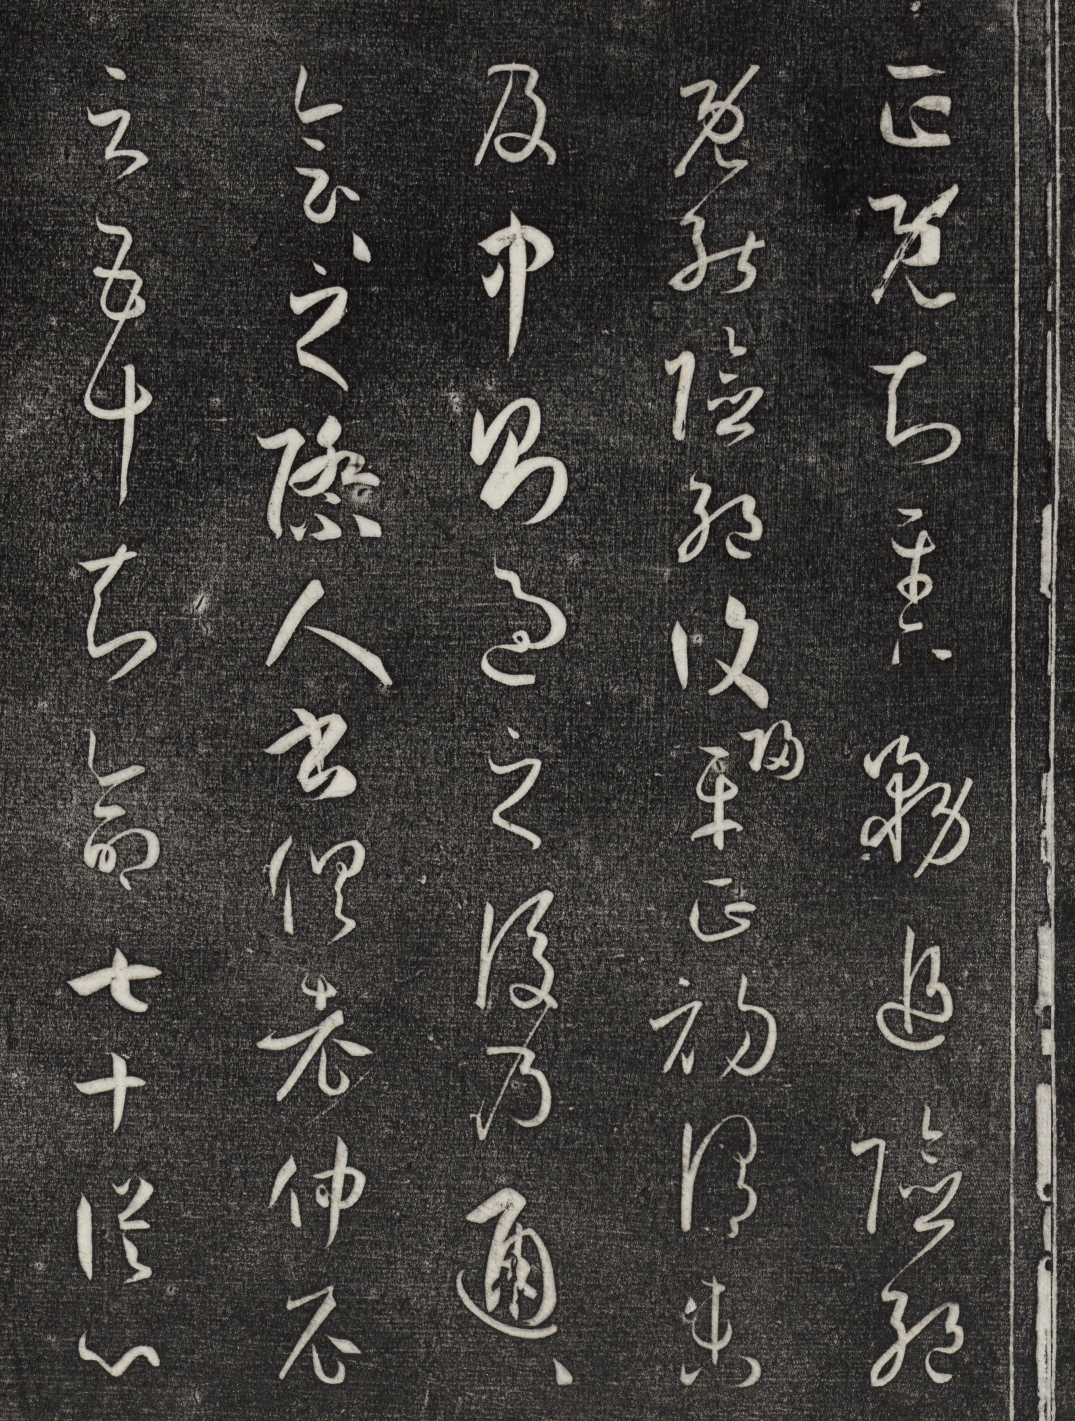 正既知平正務追險絕
既能險絕復歸平正初謂未
及中則過之後乃通〻
會〻之際人書俱老仲尼
云五十知命七十從心